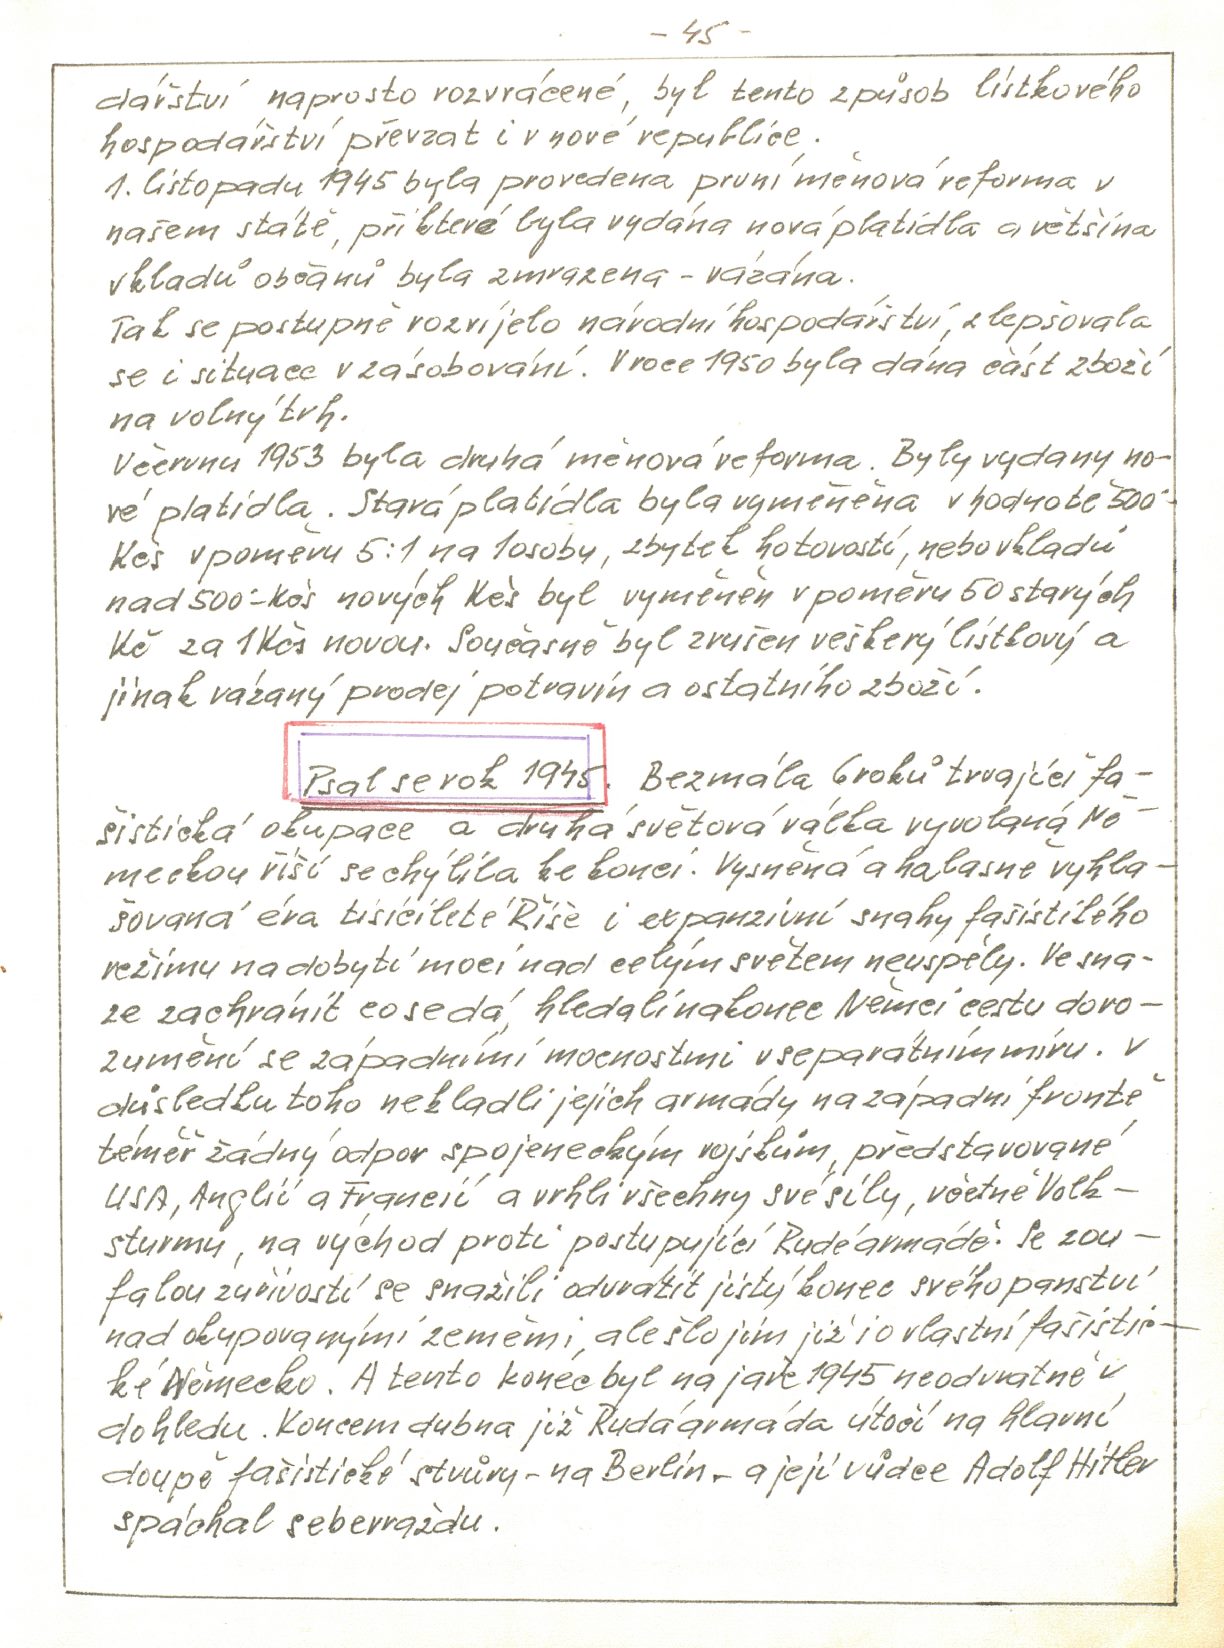 - 45 -
dářství naprosto rozvrácené, byl tento způsob lístkového
hospodářství převzat i v nové republice.
1. listopadu 1945 byla provedena první měnová reforma v
našem státě, při které byla vydána nová platidla a většina
vkladů občanů byla zmrazena - vázána.
Tak se postupně rozvíjelo národní hospodářství, zlepšovala
se i situace v zásobování. V roce 1950 byla dána část zboží
na volný trh.
V červnu 1953 byla druhá měnová reforma. Byly vydany no-
vé platidla. Stará platidla byla vyměněna v hodnotě 500.-
Kčs v poměru 5:1 na 1 osobu, zbytek hotovostí, nebo vkladů
nad 500.- Kčs nových Kčs byl vyměněn v poměru 50 starých
Kč za 1 Kčs novou. Současně byl zrušen veškerý lístkový a
jinak vázaný prodej potravin a ostatního zboží.
Psal se rok 1945. Bezmála 6 roků trvající fa-
šistická okupace a druhá světová válka vyvolaná Ně-
meckou říší se chýlila ke konci. Vysněná a halasně vyhla-
šovaná éra tisícileté Říše i expanzivní snahy fašistického
režimu na dobytí moci nad celým světem neuspěly. Ve sna-
ze zachránit co se dá, hledali nakonec Němci cestu doro-
zumění se západními mocnostmi v separátním míru. V
důsledku toho nekladli jejich armády na západní frontě
téměř žádný odpor spojeneckým vojskům, představované
USA, Anglií a Francií a vrhli všechny své síly, včetně Volk-
sturmu, na východ proti postupující Rudé armádě. Se zou-
falou zuřivostí se snažili odvrátit jistý konec svého panství
nad okupovanými zeměmi, ale šlo jim již i o vlastní fašistic-
ké Německo. A tento konec byl na jaře 1945 neodvratně v
dohledu. Koncem dubna již Rudá armáda útočí na hlavní
doupě fašistické stvůry - na Berlín - a její vůdce Adolf Hitler
spáchal sebevraždu.